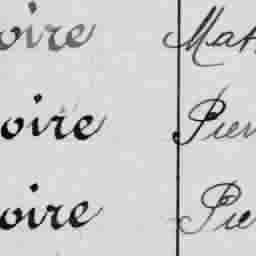 oire Mat
oire Pier
oire Pie